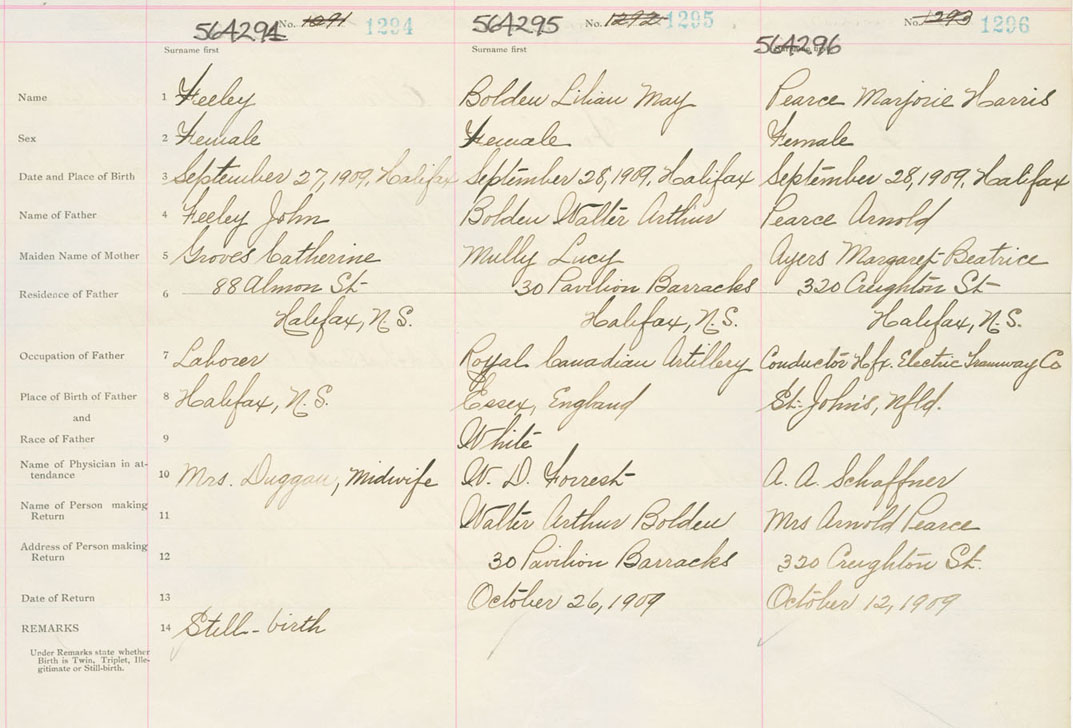 564294 No. 1291 1294 564295 No. 1292 1295 564296 No. 1293 1296
Surname first Surname first Surname first
Name 1 Feeley Bolden Lilian May Pearce Marjorie Harris
Sex 2 Female Female Female
Date and Place of Birth 3 September 27, 1909, Halifax September 28, 1909, Halifax September 28, 1909, Halifax
Name of Father 4 Feeley John Bolden Walter Arthur Pearce Arnold
Maiden Name of Mother 5 Groves Catherine Mully Lucy Ayers Margaret Beatrice
Residence of Father 6 88 Almon St 30 Pavilion Barracks 320 Creighton St
Halifax, N.S. Halifax, N.S. Halifax, N.S.
Occupation of Father 7 Laborer Royal Canadian Artillery Conductor Hfx. Electric Tramway Co
Place of Birth of Father 8 Halifax, N.S. Essex, England St. John's, Nfld.
and
Race of Father 9 White
Name of Physician in at-
tendance 10 Mrs. Duggan, Midwife W. D. Forrest A. A. Schaffner
Name of Person making
Return 11 Walter Arthur Bolden Mrs Arnold Pearce
Address of Person making
Return 12 30 Pavilion Barracks 320 Creighton St.
Date of Return 13 October 26, 1909 October 12, 1909
REMARKS 14 Still-birth
Under Remarks state whether
Birth is Twin, Triplet, Ille-
gitimate or Still-birth.